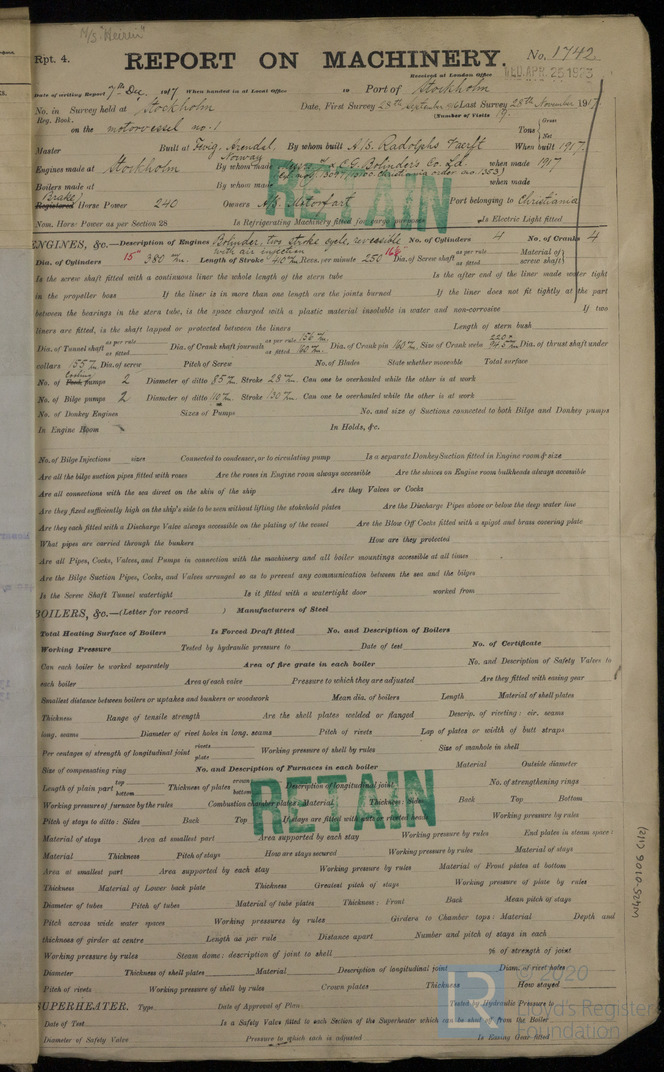 M/S "Heirin"
Rpt. 4.
REPORT ON MACHINERY.
No. 1742
Received at London Office WED. APR. 25 1923
Date of writing Report 7th Dec. 1917 When handed in at Local Office to Port of Stockholm
No. in Survey held at Stockholm Date, First Survey 28th September 96 Last Survey 28th November 1917
Reg. Book. (Number of Visits 19.
on the motorvessel no. 1 Tons Gross Net
Master Built at Tevig, Arendal, Norway By whom built A/S. Radolphs Værft When built 1917.
Engines made at Stockholm By whom made C. G. Bolinder's Co. Ltd when made 1917
Boilers made at By whom made when made
Brake
Registered Horse Power 240 Owners A/S. Motorfart Port belonging to Christiania
Nom. Horse Power as per Section 28 Is Refrigerating Machinery fitted for cargo purposes Is Electric Light fitted
RETAIN
ENGINES, &c.—Description of Engines Bolinder, two stroke cycle, reversible with air injection No. of Cylinders 4 No. of Cranks 4
Dia. of Cylinders 15" 380 m/m. Length of Stroke 410 m/m Revs. per minute 250 Dia. of Screw shaft as per rule as fitted Material of screw shaft
Is the screw shaft fitted with a continuous liner the whole length of the stern tube Is the after end of the liner made water tight
in the propeller boss If the liner is in more than one length are the joints burned If the liner does not fit tightly at the part
between the bearings in the stern tube, is the space charged with a plastic material insoluble in water and non-corrosive If two
liners are fitted, is the shaft lapped or protected between the liners Length of stern bush
Dia. of Tunnel shaft as per rule as fitted Dia. of Crank shaft journals as per rule 156 m/m. as fitted 160 m/m. Dia. of Crank pin 160 m/m. Size of Crank webs 220 x 94.5 m/m Dia. of thrust shaft under
collars 155 m/m Dia. of screw Pitch of Screw No. of Blades State whether moveable Total surface
No. of Cooling Feed pumps 2 Diameter of ditto 85 m/m Stroke 28 m/m. Can one be overhauled while the other is at work
No. of Bilge pumps 2 Diameter of ditto 110 m/m. Stroke 130 m/m. Can one be overhauled while the other is at work
No. of Donkey Engines Sizes of Pumps No. and size of Suctions connected to both Bilge and Donkey pumps
In Engine Room In Holds, &c.
No. of Bilge Injections sizes Connected to condenser, or to circulating pump Is a separate Donkey Suction fitted in Engine room & size
Are all the bilge suction pipes fitted with roses Are the roses in Engine room always accessible Are the sluices on Engine room bulkheads always accessible
Are all connections with the sea direct on the skin of the ship Are they Valves or Cocks
Are they fixed sufficiently high on the ship's side to be seen without lifting the stokehold plates Are the Discharge Pipes above or below the deep water line
Are they each fitted with a Discharge Valve always accessible on the plating of the vessel Are the Blow Off Cocks fitted with a spigot and brass covering plate
What pipes are carried through the bunkers How are they protected
Are all Pipes, Cocks, Valves, and Pumps in connection with the machinery and all boiler mountings accessible at all times
Are the Bilge Suction Pipes, Cocks, and Valves arranged so as to prevent any communication between the sea and the bilges
Is the Screw Shaft Tunnel watertight Is it fitted with a watertight door worked from
BOILERS, &c.—(Letter for record ) Manufacturers of Steel
Total Heating Surface of Boilers Is Forced Draft fitted No. and Description of Boilers
Working Pressure Tested by hydraulic pressure to Date of test No. of Certificate
Can each boiler be worked separately Area of fire grate in each boiler No. and Description of Safety Valves to
each boiler Area of each valve Pressure to which they are adjusted Are they fitted with easing gear
Smallest distance between boilers or uptakes and bunkers or woodwork Mean dia. of boilers Length Material of shell plates
Thickness Range of tensile strength Are the shell plates welded or flanged Descrip. of riveting: cir. seams
long. seams Diameter of rivet holes in long. seams Pitch of rivets Lap of plates or width of butt straps
Per centages of strength of longitudinal joint rivets plate Working pressure of shell by rules Size of manhole in shell
Size of compensating ring No. and Description of Furnaces in each boiler Material Outside diameter
Length of plain part top bottom Thickness of plates crown bottom Description of longitudinal joint No. of strengthening rings
Working pressure of furnace by the rules Combustion chamber plates: Material Thickness: Sides Back Top Bottom
Pitch of stays to ditto: Sides Back Top If stays are fitted with nuts or riveted heads Working pressure by rules
RETAIN
Material of stays Area at smallest part Area supported by each stay Working pressure by rules End plates in steam space:
Material Thickness Pitch of stays How are stays secured Working pressure by rules Material of stays
Area at smallest part Area supported by each stay Working pressure by rules Material of Front plates at bottom
Thickness Material of Lower back plate Thickness Greatest pitch of stays Working pressure of plate by rules
Diameter of tubes Pitch of tubes Material of tube plates Thickness: Front Back Mean pitch of stays
Pitch across wide water spaces Working pressures by rules Girders to Chamber tops: Material Depth and
thickness of girder at centre Length as per rule Distance apart Number and pitch of stays in each
Working pressure by rules Steam dome: description of joint to shell % of strength of joint
Diameter Thickness of shell plates Material Description of longitudinal joint Diam. of rivet holes
Pitch of rivets Working pressure of shell by rules Crown plates Thickness How stayed
SUPERHEATER. Type Date of Approval of Plan Tested by Hydraulic Pressure to
Date of Test Is a Safety Valve fitted to each Section of the Superheater which can be shut off from the Boiler
Diameter of Safety Valve Pressure to which each is adjusted Is Easing Gear fitted
W425-0106 (1/2)
LR © 2020
Lloyd's Register
Foundation